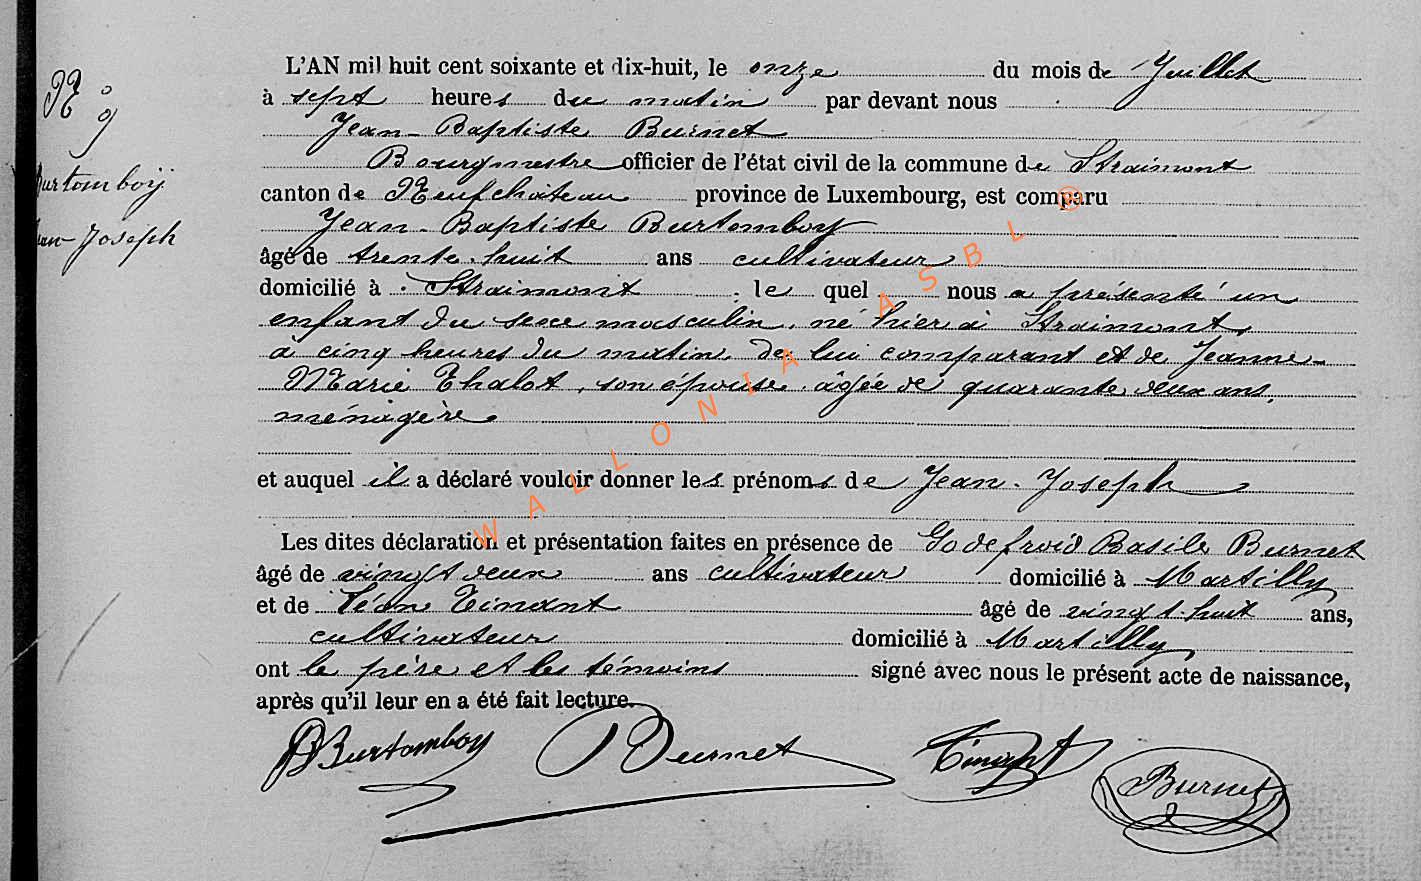 N° 9
Burtomboij
Jean-Joseph
L'AN mil huit cent soixante et dix-huit, le onze du mois de Juillet
à sept heures du matin par devant nous
Jean-Baptiste Burnet
Bourgmestre officier de l'état civil de la commune de Straimont
canton de Neufchâteau province de Luxembourg, est comparu
Jean-Baptiste Burtomboy
âgé de trente-huit ans cultivateur
domicilié à Straimont le quel nous a présenté un
enfant du sexe masculin, né hier à Straimont,
à cinq heures du matin, de lui comparant et de Jeanne-
Marie Thalot, son épouse, âgée de quarante deux ans,
ménagère.
et auquel il a déclaré vouloir donner les prénoms de Jean-Joseph
Les dites déclaration et présentation faites en présence de Godefroid Basile Burnet
âgé de vingt deux ans cultivateur domicilié à Martilly
et de Léon Tinant âgé de vingt-huit ans,
cultivateur domicilié à Martilly,
ont le père et les témoins signé avec nous le présent acte de naissance,
après qu'il leur en a été fait lecture.
JBBurtomboy Burnet Tinant Burnet
WALLONIA ASBL ®